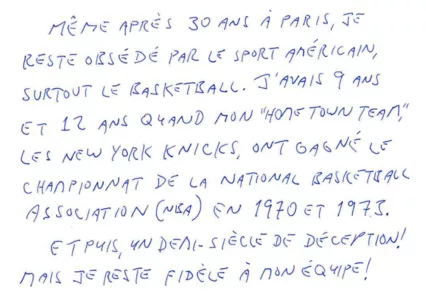 MÊME APRÈS 30 ANS À PARIS, JE
RESTE OBSÉDÉ PAR LE SPORT AMÉRICAIN,
SURTOUT LE BASKETBALL. J'AVAIS 9 ANS
ET 12 ANS QUAND MON "HOME TOWN TEAM,"
LES NEW YORK KNICKS, ONT GAGNÉ LE
CHAMPIONNAT DE LA NATIONAL BASKETBALL
ASSOCIATION (NBA) EN 1970 ET 1973.
ET PUIS, UN DEMI-SIÈCLE DE DÉCEPTION!
MAIS JE RESTE FIDÈLE À MON ÉQUIPE!